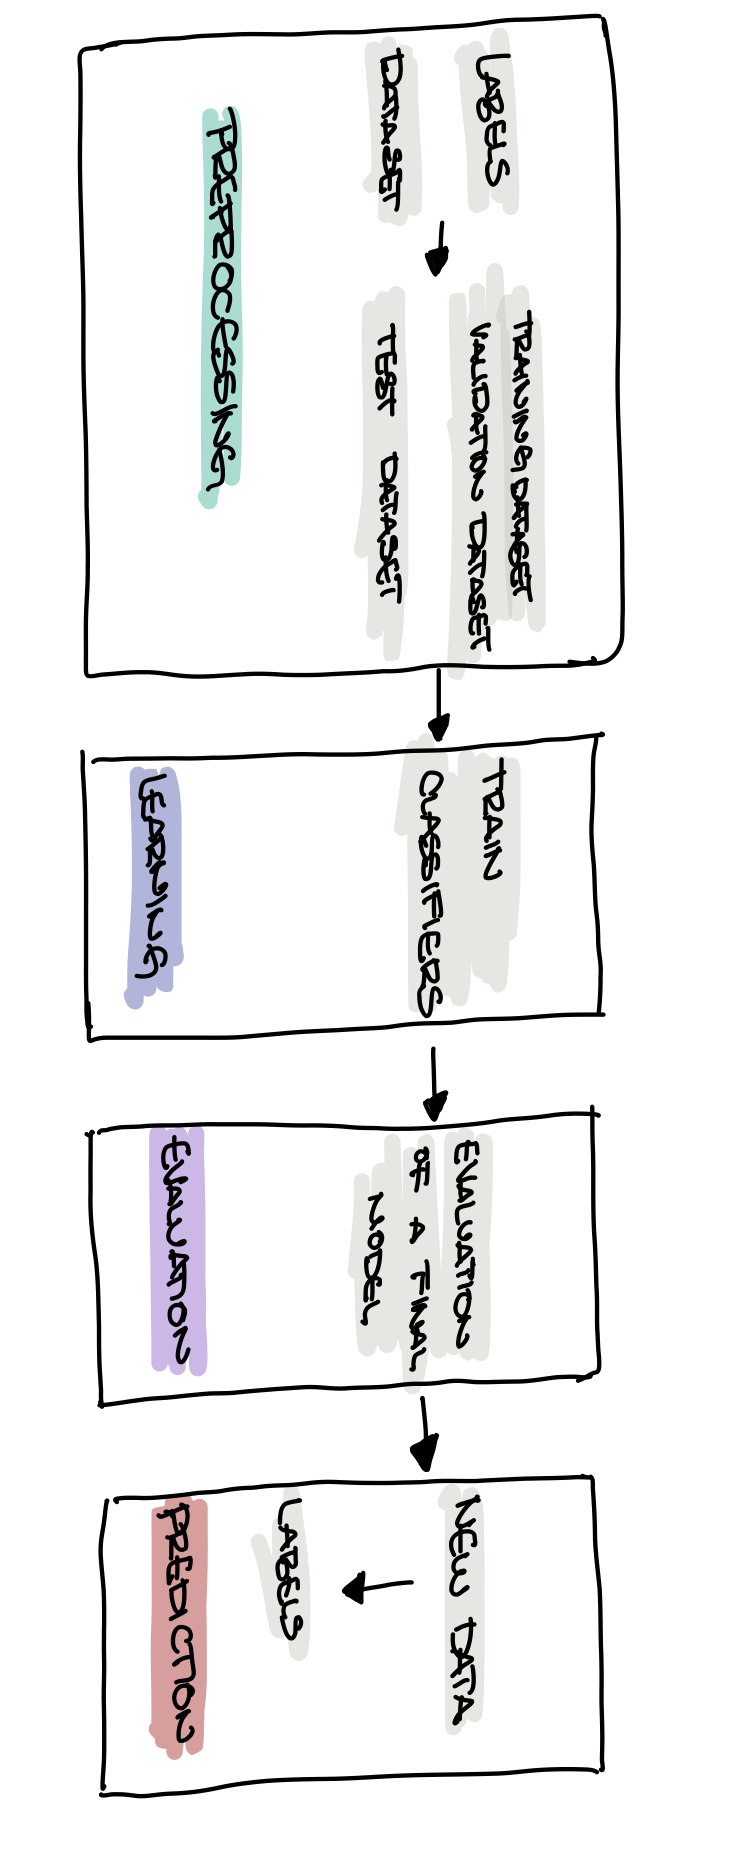 LABELS
DATASET
TRAINING DATASET
VALIDATION DATASET
TEST DATASET
PREPROCESSING
TRAIN
CLASSIFIERS
LEARNING
EVALUATION
OF A FINAL
MODEL
EVALUATION
NEW DATA
LABELS
PREDICTION